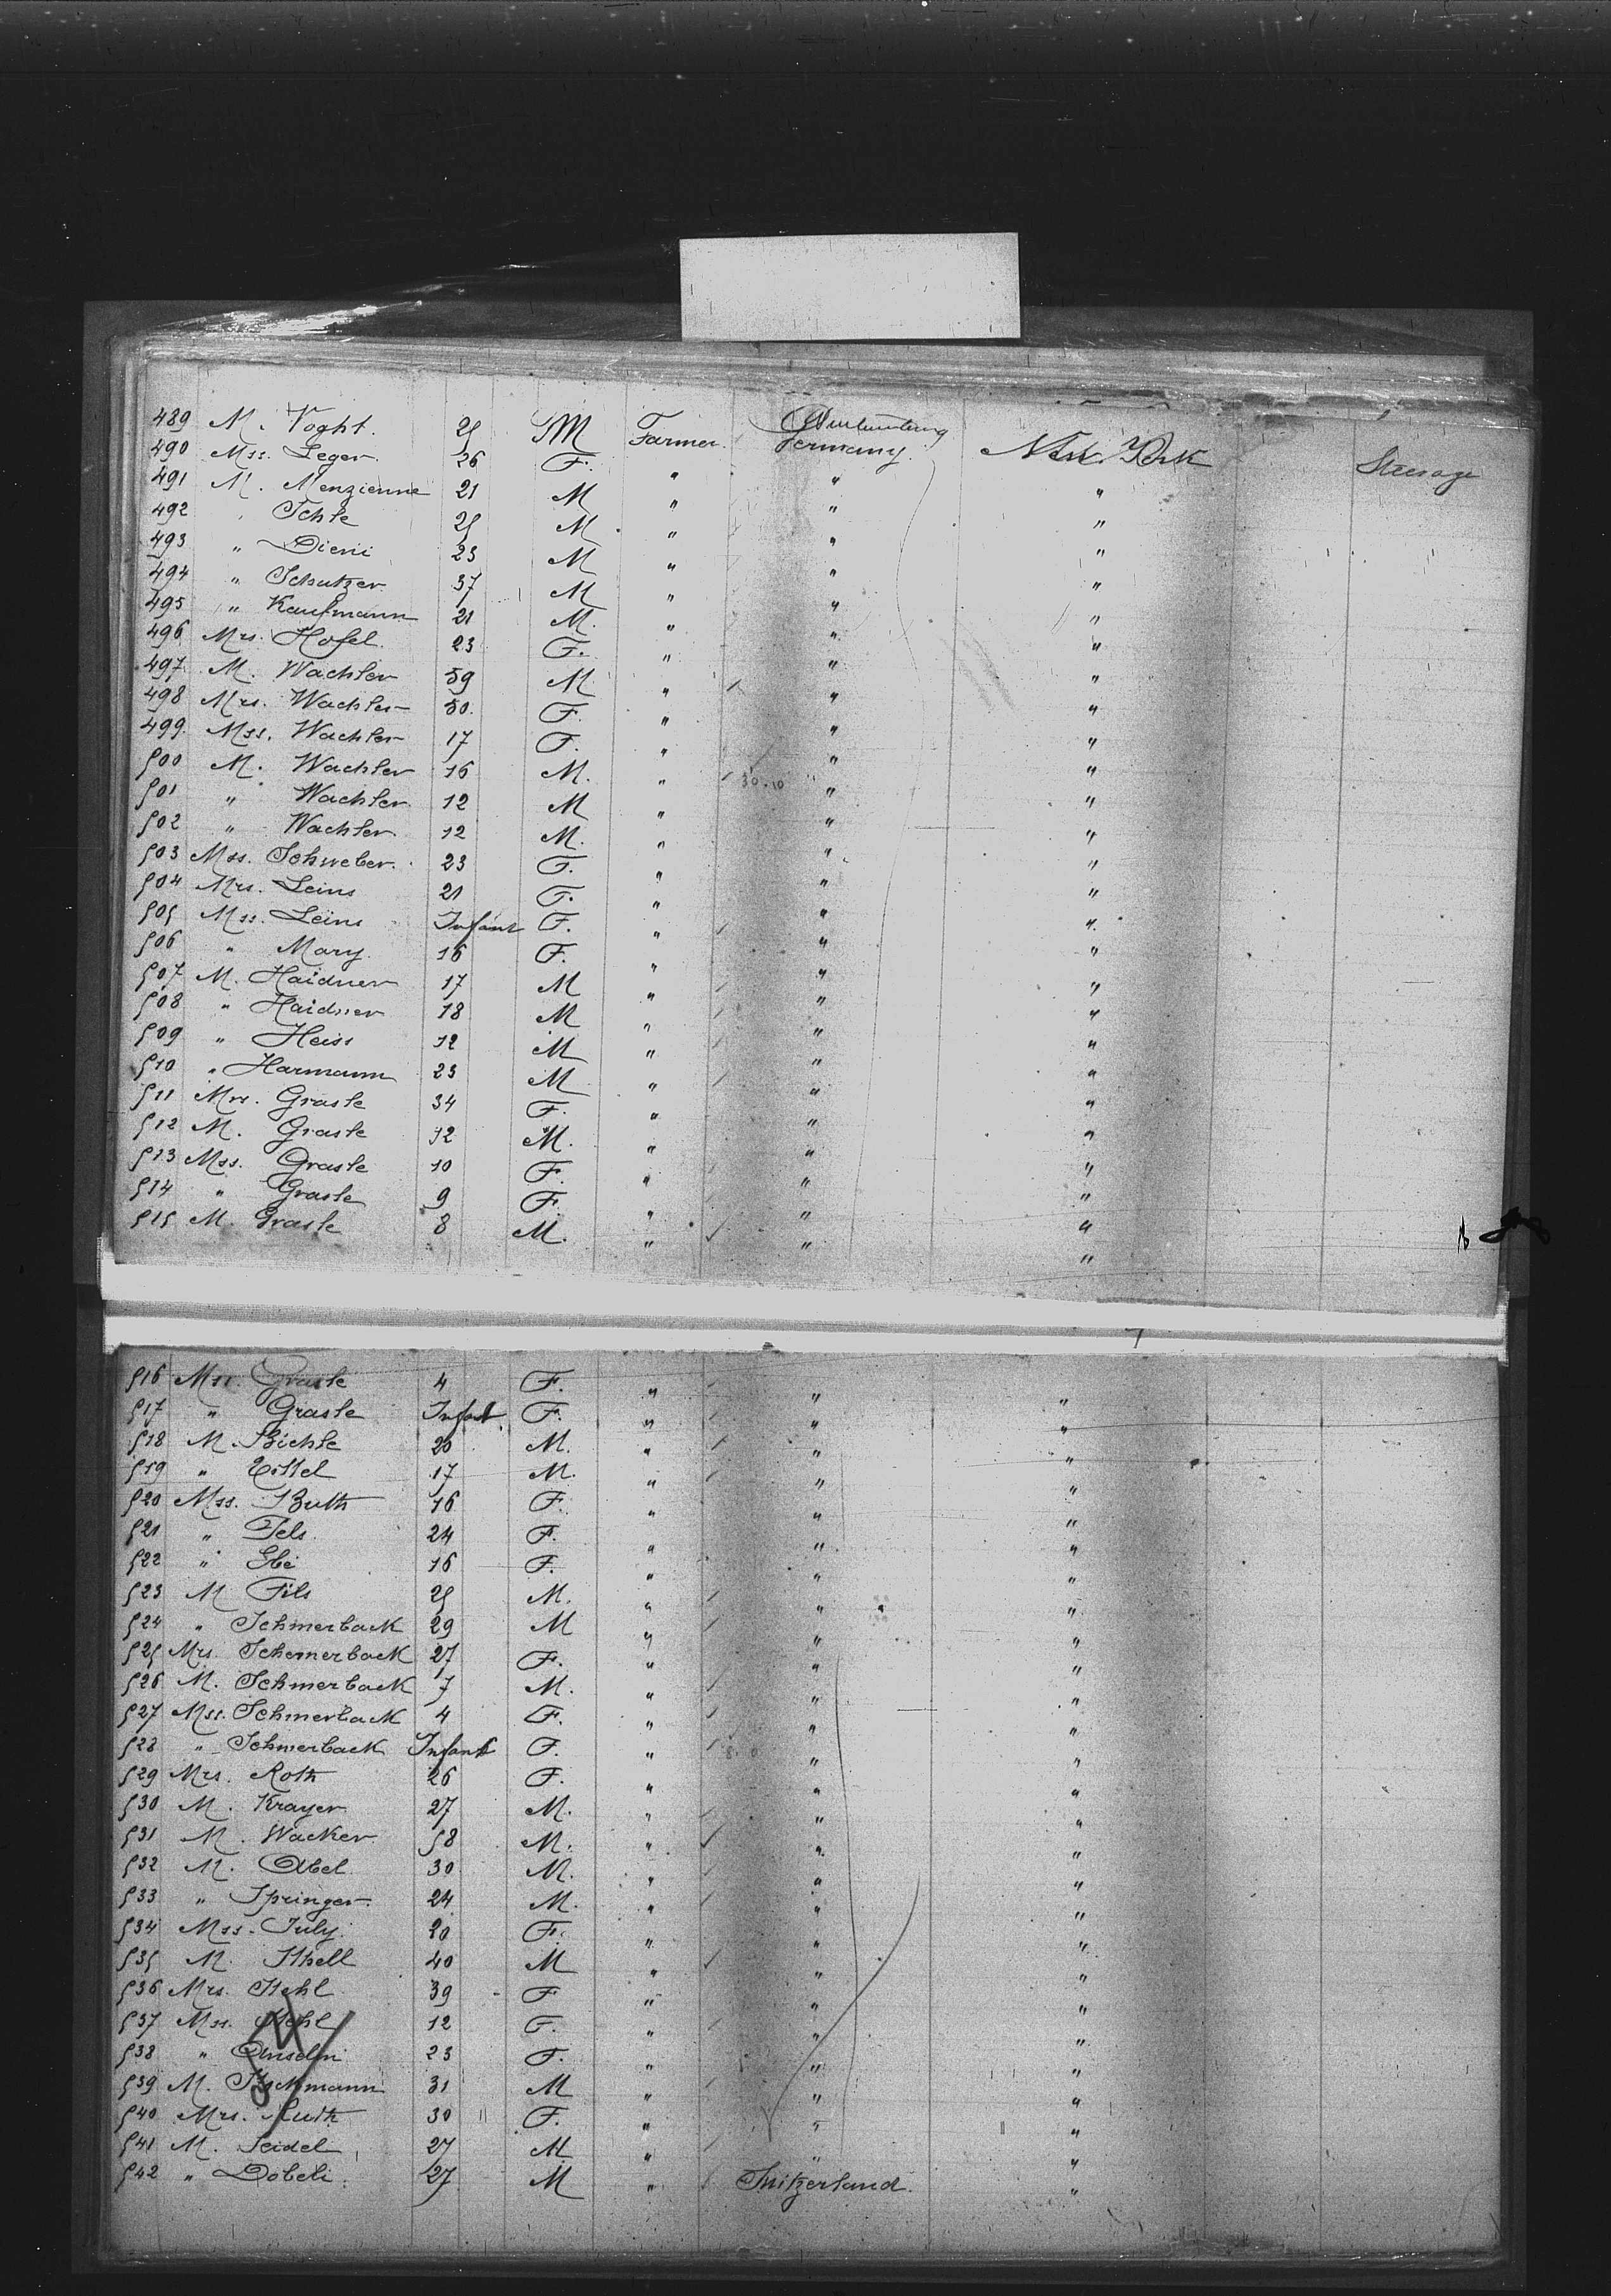 489 M. Voght. 25 M Farmer Germany. New York Steerage
490 Mss. Leger. 26 F. " " "
491 M. Menzienne 21 M " " "
492 Ichle 25 M " " "
493 " Dierii 23 M " " "
494 " Schutzer 37 M " " "
495 " Kaufmann 21 M. " " "
496 Mrs. Hofel. 23 F. " " "
497 M. Wachler 59 M " " "
498 Mrs. Wachler 50. F. " " "
499. Mss. Wachler 17 F. " " "
500 M. Wachler 16 M. " 30.10 " "
501 " Wachler 12 M " " "
502 " Wachler. 12 M. " " "
503 Mss. Schweber. 23 F. " " "
504 Mrs. Leins 21 F. " " "
505 Mss. Leins Infant F. " " "
506 " Mary. 16 F. " " "
507 M. Haidner 17 M " " "
508 " Haidner 18 M " " "
509 " Heiss 12 M " " "
510 " Harmann 23 M " " "
511 Mrs. Grasle 34 F. " " "
512 M. Grasle 12 M. " " "
513 Mss. Grasle 10 F. " " "
514 " Grasle 9 F. " " "
515 M. Grasle 8 M. " " "
516 Mss. Grasle 4 F. " " "
517 " Grasle Infant F. " " "
518 M. Bichle 20 M. " " "
519 " Eittel 17 M. " " "
520 Mss. Buth 16 F. " " "
521 " Fels. 24 F. " " "
522 " 16 F. " " "
523 M Fils 25 M. " " "
524 " Schmerback 29 M " " "
525 Mrs. Schemerback 27 F. " " "
526 M. Schmerback 7 M. " " "
527 Mss. Schmerback 4 F. " " "
528 " Schmerback Infant F. " " "
529 Mrs. Roth 26 F. " " "
530 M. Krayer 27 M. " " "
531 M. Wacker. 58 M. " " "
532 M. Abel. 30 M. " " "
533 " Springer. 24 M. " " "
534 Mss. July. 20 F. " " "
535 M. Sthell 40 M " " "
536 Mrs. Stehl 39 F " " "
537 Mss. Stehl 12 F. " " "
538 " Anselm 23 F. " " "
539 M. 31 M " " "
540 Mrs. Ruth 30 F. " " "
541 M. Seidel 27 M " " "
542 " Dobeli. 27 M " Switzerland. "